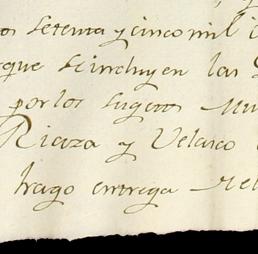 os setenta y cinco mil
que se incluyen en las
por los sugetos
Riaza y Velasco
hago entrega